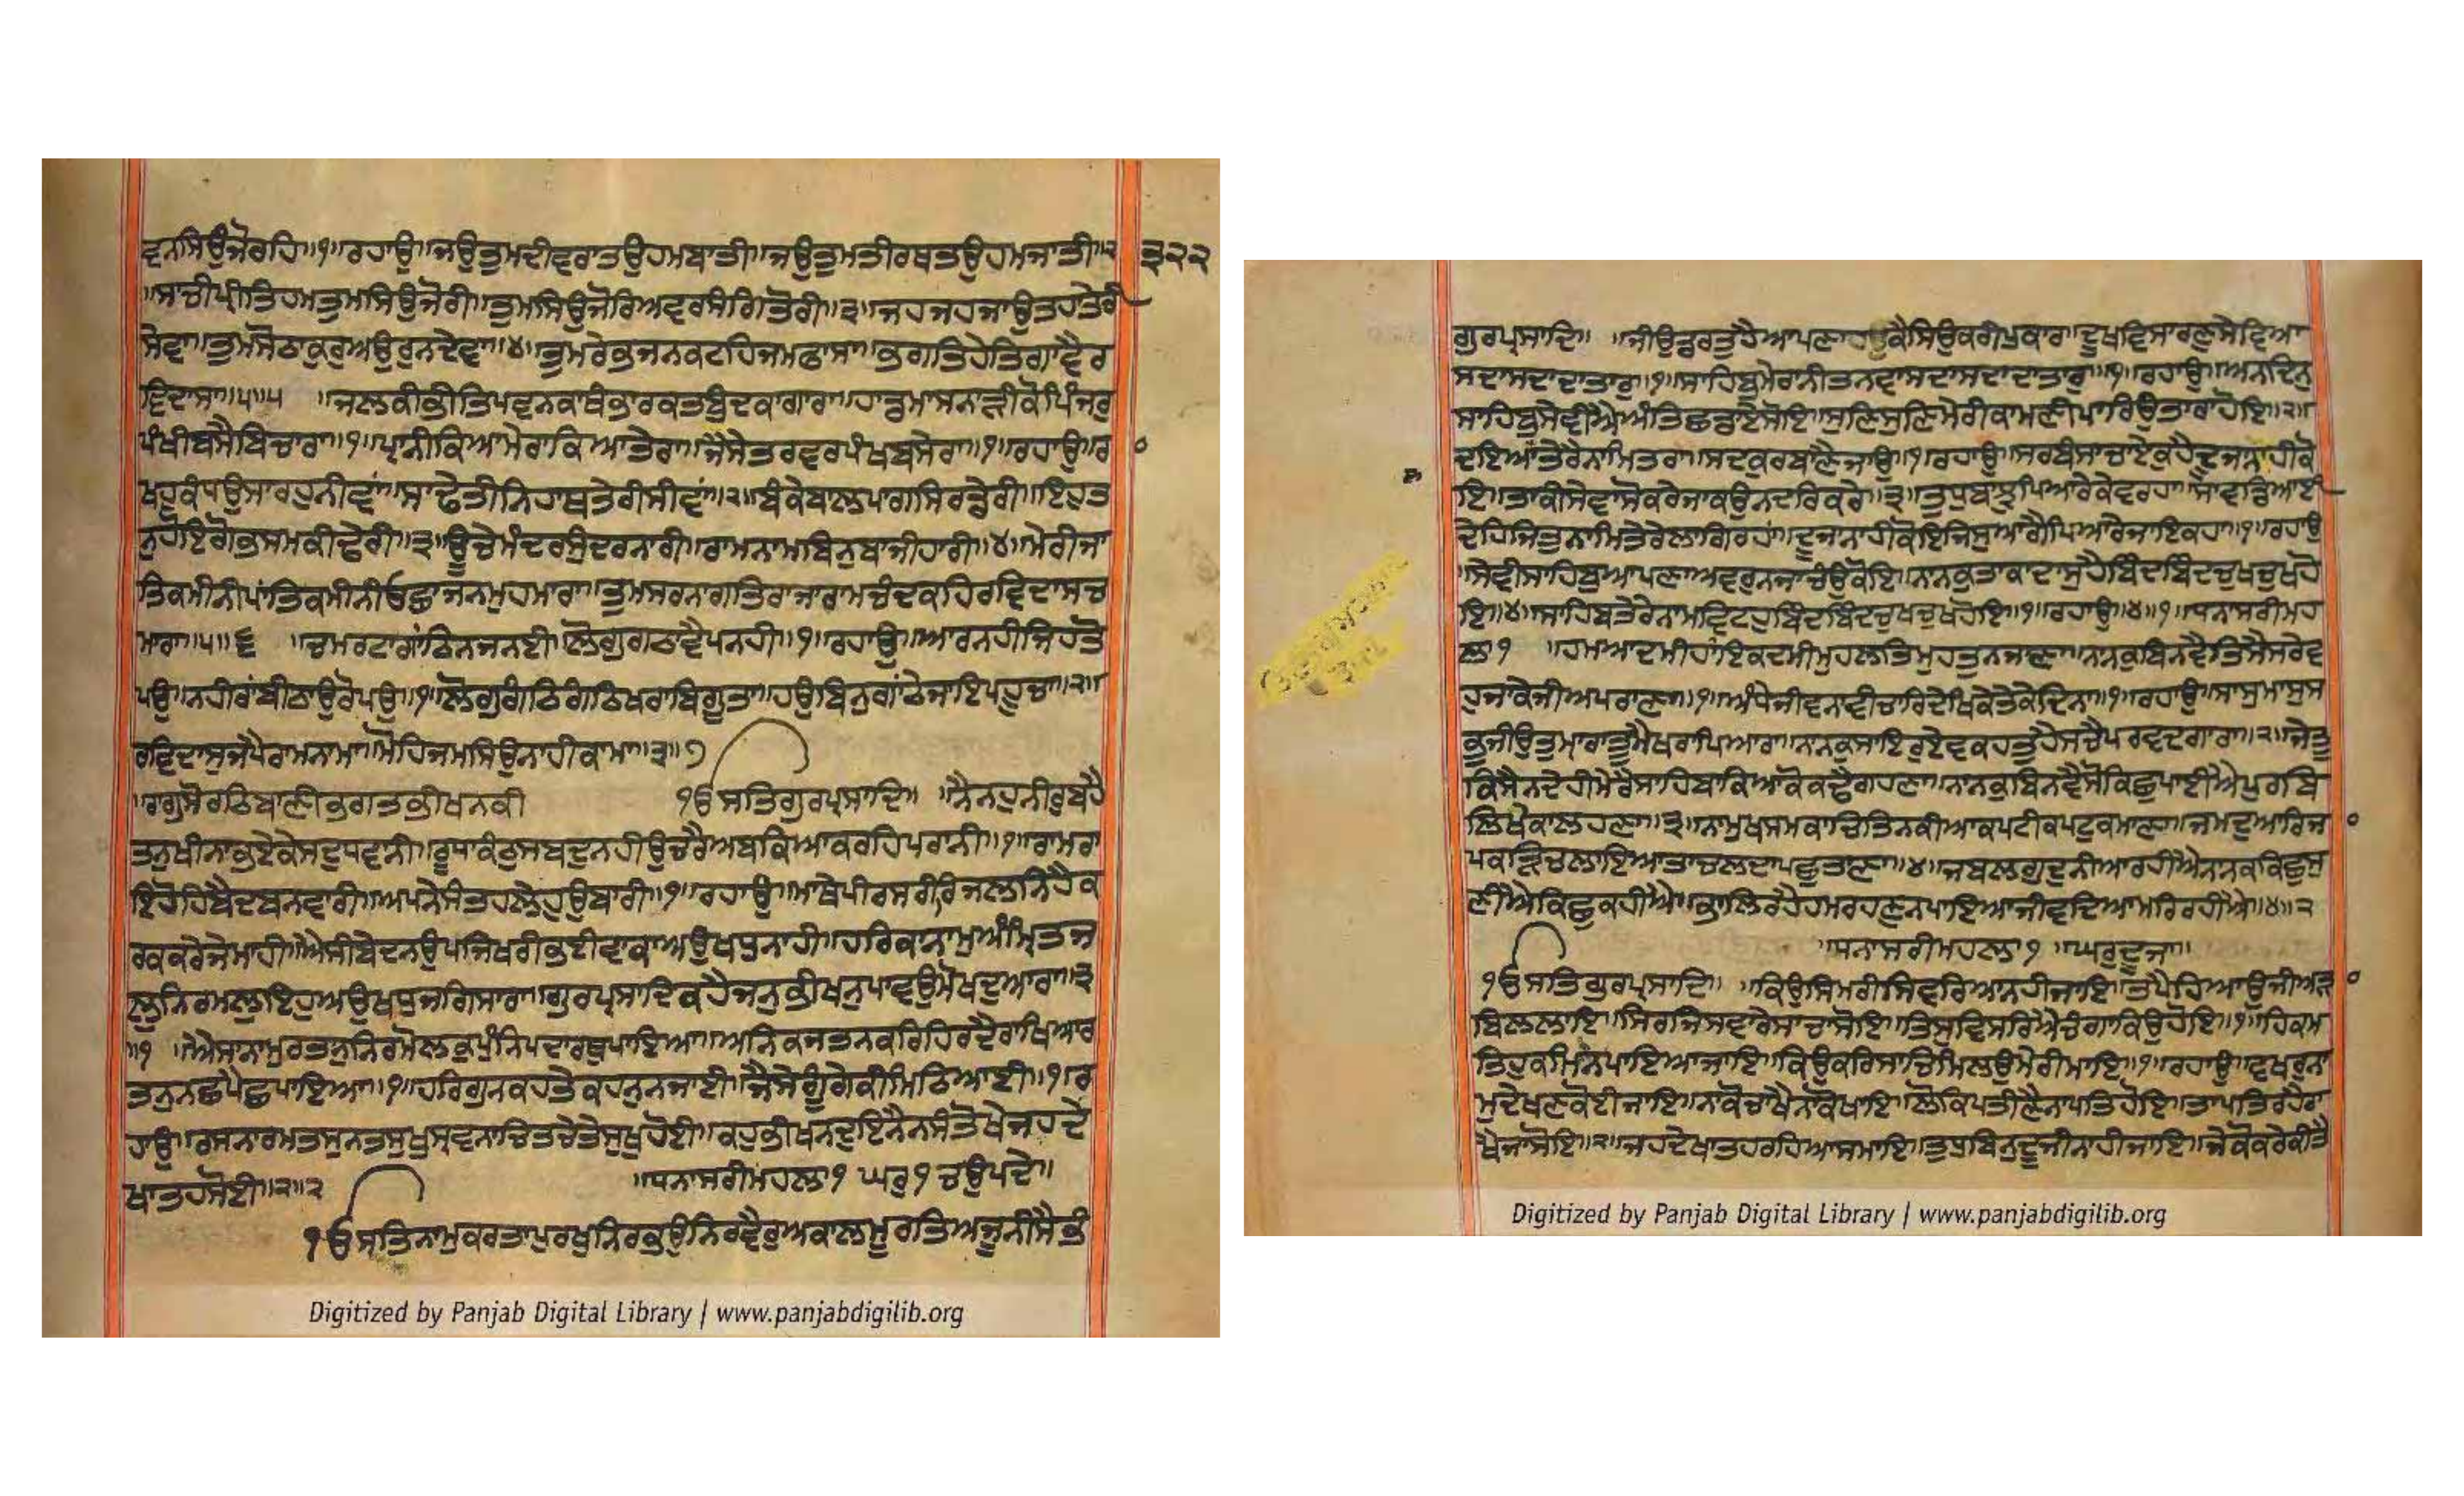 ਵਨਸਿਉਜੋਰਹਿ॥੧॥ਰਹਾਉ॥ਜਉਤੁਮਦੀਵਰਾਤਉਹਮਬਾਤੀ॥ਜਉਤੁਮਤੀਰਥਤਉਹਮਜਾਤੀ॥੨ ੩੨੨
॥ਸਾਚੀਪ੍ਰੀਤਿਹਮਤੁਮਸਿਉਜੋਰੀ॥ਤੁਮਸਿਉਜੋਰਿਅਵਰਸੰਗਿਤੋਰੀ॥੩॥ਜਹਜਹਜਾਉਤਹਤੇਰੀ
ਸੇਵਾ॥ਤੁਮਸੋਠਾਕੁਰੁਅਉਰੁਨਦੇਵਾ॥੪॥ਤੁਮਰੇਭਜਨਕਟਹਿਜਮਫਾਸਾ॥ਭਗਤਿਹੇਤਿਗਾਵੈਰ
ਵਿਦਾਸਾ॥੫॥੫ ॥ਜਲਕੀਭੀਤਿਪਵਨਕਾਥੰਭਾਰਕਤਬੁੰਦਕਾਗਾਰਾ॥ਹਾਡਮਾਸਨਾੜੀਕੋਪਿੰਜਰੁ
ਪੰਖੀਬਸੈਬਿਚਾਰਾ॥੧॥ਪ੍ਰਾਨੀਕਿਆਮੇਰਾਕਿਆਤੇਰਾ॥ਜੈਸੇਤਰਵਰਪੰਖਬਸੇਰਾ॥੧॥ਰਹਾਉ॥ਰ
ਖਹੁਕੰਧਉਸਾਰਹੁਨੀਵਾਂ॥ਸਾਢੇਤੀਨਿਹਾਥਤੇਰੀਸੀਵਾਂ॥੨॥ਬੰਕੇਬਾਲਪਾਗਸਿਰਡੇਰੀ॥ਇਹੁਤ
ਨੁਹੋਇਗੋਭਸਮਕੀਢੇਰੀ॥੩॥ਊਚੇਮੰਦਰਸੁੰਦਰਨਾਰੀ॥ਰਾਮਨਾਮਬਿਨੁਬਾਜੀਹਾਰੀ॥੪॥ਮੇਰੀਜਾ
ਤਿਕਮੀਨੀਪਾਂਤਿਕਮੀਨੀਓਛਾਜਨਮੁਹਮਾਰਾ॥ਤੁਮਸਰਨਾਗਤਿਰਾਜਾਰਾਮਚੰਦਕਹਿਰਵਿਦਾਸਚ
ਮਾਰਾ॥੫॥੬ ॥ਚਮਰਟਾਗਾਂਠਿਨਜਨਈ॥ਲੋਗੁਗਠਾਵੈਪਨਹੀ॥੧॥ਰਹਾਉ॥ਆਰਨਹੀਜਿਹਤੋ
ਪਉ॥ਨਹੀਰਾਂਬੀਠਾਉਰੋਪਉ॥੧॥ਲੋਗੁਗੰਠਿਗੰਠਿਖਰਾਬਿਗੂਤਾ॥ਹਉਬਿਨੁਗਾਂਠੇਜਾਇਪਹੂਚਾ॥੨॥
ਰਵਿਦਾਸੁਜਪੈਰਾਮਨਾਮਾ॥ਮੋਹਿਜਮਸਿਉਨਾਹੀਕਾਮਾ॥੩॥੭
॥ਰਾਗੁਸੋਰਠਿਬਾਣੀਭਗਤਭੀਖਨਕੀ ੴਸਤਿਗੁਰਪ੍ਰਸਾਦਿ॥ ॥ਨੈਨਹੁਨੀਰੁਬਹੈ
ਤਨੁਖੀਨਾਭਏਕੇਸਦੁਧਵਾਨੀ॥ਰੂਧਾਕੰਠੁਸਬਦੁਨਹੀਉਚਰੈਅਬਕਿਆਕਰਹਿਪਰਾਨੀ॥੧॥ਰਾਮਰਾ
ਇਹੋਹਿਬੈਦਬਨਵਾਰੀ॥ਅਪਨੇਸੰਤਹਲੇਹੁਉਬਾਰੀ॥੧॥ਰਹਾਉ॥ਮਾਥੇਪੀਰਸਰੀਰਿਜਲਨਿਹੈਕ
ਰਕਕਰੇਜੇਮਾਹੀ॥ਐਸੀਬੇਦਨਉਪਜਿਖਰੀਭਈਵਾਕਾਅਉਖਧੁਨਾਹੀ॥ਹਰਿਕਾਨਾਮੁਅੰਮ੍ਰਿਤਜ
ਲੁਨਿਰਮਲੁਇਹੁਅਉਖਧੁਜਗਿਸਾਰਾ॥ਗੁਰਪ੍ਰਸਾਦਿਕਹੈਜਨੁਭੀਖਨੁਪਾਵਉਮੋਖਦੁਆਰਾ॥੩
॥੧ ॥ਐਸਾਨਾਮੁਰਤਨੁਨਿਰਮੋਲਕੁਪੁੰਨਿਪਦਾਰਥੁਪਾਇਆ॥ਅਨਿਕਜਤਨਕਰਿਹਿਰਦੈਰਾਖਿਆਰ
ਤਨੁਨਛਪੈਛਪਾਇਆ॥੧॥ਹਰਿਗੁਨਕਹਤੇਕਹਨੁਨਜਾਈ॥ਜੈਸੇਗੂੰਗੇਕੀਮਿਠਿਆਈ॥੧॥ਰ
ਹਾਉ॥ਰਸਨਾਰਮਤਸੁਨਤਸੁਖੁਸ੍ਰਵਨਾਚਿਤਚੇਤੇਸੁਖੁਹੋਈ॥ਕਹੁਭੀਖਨਦੁਇਨੈਨਸੰਤੋਖੇਜਹਦੇ
ਖਾਤਹਸੋਈ॥੨॥੨ ॥ਧਨਾਸਰੀਮਹਲਾ੧ ਘਰੁ੧ਚਉਪਦੇ॥
ੴਸਤਿਨਾਮੁਕਰਤਾਪੁਰਖੁਨਿਰਭਉਨਿਰਵੈਰੁਅਕਾਲਮੂਰਤਿਅਜੂਨੀਸੈਭੰ
Digitized by Panjab Digital Library | www.panjabdigilib.org
ਗੁਰਪ੍ਰਸਾਦਿ॥ ॥ਜੀਉਡਰਤੁਹੈਆਪਣਾਕੈਸਿਉਕਰੀਪੁਕਾਰ॥ਦੂਖਵਿਸਾਰਣੁਸੇਵਿਆ
ਸਦਾਸਦਾਦਾਤਾਰੁ॥੧॥ਸਾਹਿਬੁਮੇਰਾਨੀਤਨਵਾਸਦਾਸਦਾਦਾਤਾਰੁ॥੧॥ਰਹਾਉ॥ਅਨਦਿਨੁ
ਸਾਹਿਬੁਸੇਵੀਐਅੰਤਿਛਡਾਏਸੋਇ॥ਸੁਣਿਸੁਣਿਮੇਰੀਕਾਮਣੀਪਾਰਿਉਤਾਰਾਹੋਇ॥੨॥
ਦਇਆਤੇਰੈਨਾਮਿਤਰਾ॥ਸਦਕੁਰਬਾਣੈਜਾਉ॥੧॥ਰਹਾਉ॥ਸਰਬੰਸਾਚਾਏਕੁਹੈਦੂਜਾਨਾਹੀਕੋ
ਇ॥ਤਾਕੀਸੇਵਾਸੋਕਰੇਜਾਕਉਨਦਰਿਕਰੇ॥੩॥ਤੁਧੁਬਾਝੁਪਿਆਰੇਕੇਵਰਹਾ॥ਸਾਵਡਿਆਈ
ਦੇਹਿਜਿਤੁਨਾਮਿਤੇਰੇਲਾਗਿਰਹਾਂ॥ਦੂਜਾਨਾਹੀਕੋਇਜਿਸੁਆਗੈਪਿਆਰੇਜਾਇਕਹਾ॥੧॥ਰਹਾਉ
॥ਸੇਵੀਸਾਹਿਬੁਆਪਣਾਅਵਰੁਨਜਾਚੰਉਕੋਇ॥ਨਾਨਕੁਤਾਕਾਦਾਸੁਹੈਬਿੰਦਬਿੰਦਚੁਖਚੁਖਹੋ
ਇ॥੪॥ਸਾਹਿਬਤੇਰੇਨਾਮਵਿਟਹੁਬਿੰਦਬਿੰਦਚੁਖਚੁਖਹੋਇ॥੧॥ਰਹਾਉ॥੪॥੧॥ਧਨਾਸਰੀਮਹ
ਲਾ੧ ॥ਹਮਆਦਮੀਹਾਂਇਕਦਮੀਮੁਹਲਤਿਮੁਹਤੁਨਜਾਣਾ॥ਨਾਨਕੁਬਿਨਵੈਤਿਸੈਸਰੇਵ
ਹੁਜਾਕੇਜੀਅਪਰਾਣਾ॥੧॥ਅੰਧੇਜੀਵਨਾਵੀਚਾਰਿਦੇਖਿਕੇਤੇਕੇਦਿਨਾ॥੧॥ਰਹਾਉ॥ਸਾਸੁਮਾਸੁਸ
ਭੁਜੀਉਤੁਮਾਰਾਤੂਮੈਖਰਾਪਿਆਰਾ॥ਨਾਨਕੁਸਾਇਰੁਏਵਕਹਤੁਹੈਸਚੇਪਰਵਦਗਾਰਾ॥੨॥ਜੇਤੂ
ਕਿਸੈਨਦੇਹੀਮੇਰੇਸਾਹਿਬਾਕਿਆਕੋਕਢੈਗਹਣਾ॥ਨਾਨਕੁਬਿਨਵੈਸੋਕਿਛੁਪਾਈਐਪੁਰਬਿ
ਲਿਖੇਕਾਲਹਣਾ॥੩॥ਨਾਮੁਖਸਮਕਾਚਿਤਿਨਕੀਆਕਪਟੀਕਪਟੁਕਮਾਣਾ॥ਜਮਦੁਆਰਿਜਾ
ਪਕੜਿਚਲਾਇਆਤਾਚਲਦਾਪਛੁਤਾਣਾ॥੪॥ਜਬਲਗੁਦੁਨੀਆਰਹੀਐਨਾਨਕਕਿਛੁਸੁ
ਣੀਐਕਿਛੁਕਹੀਐ॥ਭਾਲਿਰਹੇਹਮਰਹਣੁਨਪਾਇਆਜੀਵਦਿਆਮਰਿਰਹੀਐ॥੫॥੨
॥ਧਨਾਸਰੀਮਹਲਾ੧ ॥ਘਰੁਦੂਜਾ॥
ੴਸਤਿਗੁਰਪ੍ਰਸਾਦਿ॥ ॥ਕਿਉਸਿਮਰੀਸਿਵਰਿਆਨਹੀਜਾਇ॥ਤਪੈਹਿਆਉਜੀਅੜਾ
ਬਿਲਲਾਇ॥ਸਿਰਜਿਸਵਾਰੇਸਾਚਾਸੋਇ॥ਤਿਸੁਵਿਸਰਿਐਚੰਗਾਕਿਉਹੋਇ॥੧॥ਹਿਕਮ
ਤਿਹੁਕਮਿਨਪਾਇਆਜਾਇ॥ਕਿਉਕਰਿਸਾਚਿਮਿਲਉਮੇਰੀਮਾਇ॥੧॥ਰਹਾਉ॥ਵਖਰੁਨਾ
ਮੁਦੇਖਣਕੋਈਜਾਇ॥ਨਾਕੋਚਾਖੈਨਾਕੋਖਾਇ॥ਲੋਕਿਪਤੀਣੈਨਾਪਤਿਹੋਇ॥ਤਾਪਤਿਰਹੈਰਾ
ਖੈਜਾਸੋਇ॥੨॥ਜਹਦੇਖਾਤਹਰਹਿਆਸਮਾਇ॥ਤੁਧੁਬਿਨੁਦੂਜੀਨਾਹੀਜਾਇ॥ਜੇਕੋਕਰੇਕੀਤੈ
Digitized by Panjab Digital Library | www.panjabdigilib.org